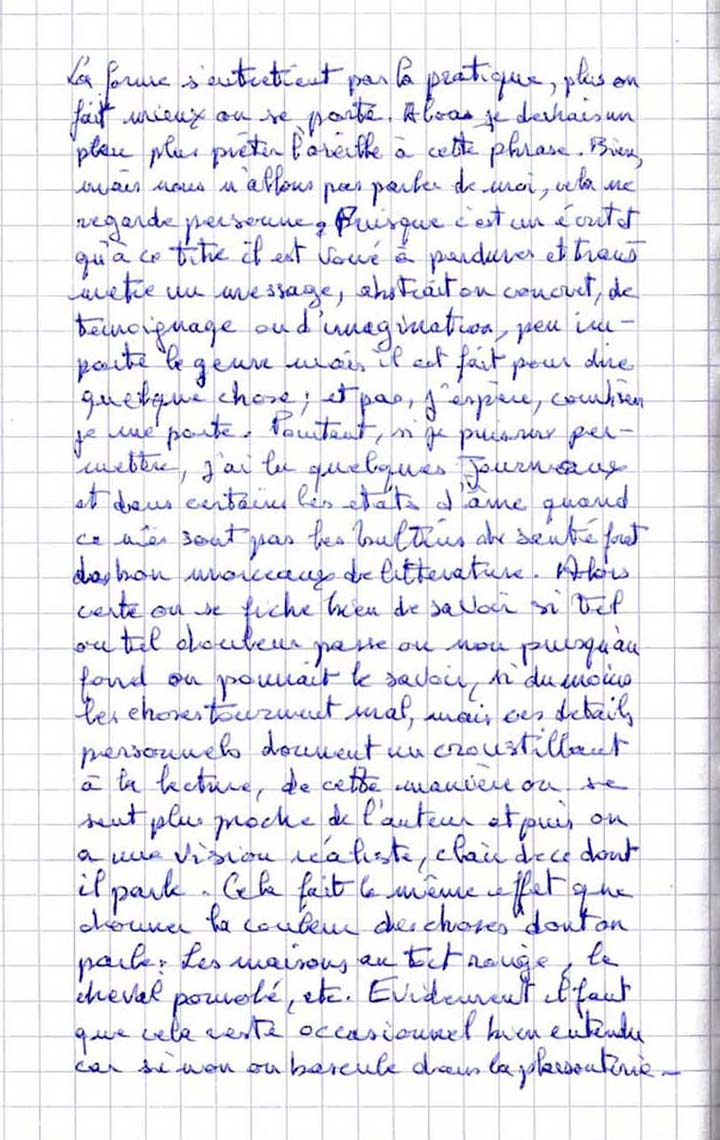 La forme s'entretient par la pratique, plus on
fait mieux on se porte. Alors je devrais un
peu plus prêter l'oreille à cette phrase. Bien,
mais nous n'allons pas parler de moi, cela ne
regarde personne, Puisque c'est un écrit et
qu'à ce titre il est voué à perdurer et trans
mettre un message, abstrait ou concret, de
témoignage ou d'imagination, peu im-
porte le genre mais il est fait pour dire
quelque chose ; et pas, j'espère, combien
je me porte. Pourtant, si je puis me per-
mettre, j'ai lu quelques journaux
et dans certains les états d'âme quand
ce n'es sont pas les bulletins de santé font
de bon morceaux de litterature. Alors
certe on se fiche bien de savoir si tel
ou tel douleur passe ou non puisqu'au
fond on pourrait le savoir, si du moins
les choses tournent mal, mais ces details
personnels donnent un croustillant
à la lecture, de cette manière on se
sent plus proche de l'auteur et puis on
a une vision réaliste, clair de ce dont
il parle. Cela fait le même effet que
donner la couleur des choses dont on
parle : Les maisons au toit rouge, le
cheval pommelé, etc. Evidemment il faut
que cela reste occasionnel bien entendu
car si non on bascule dans la